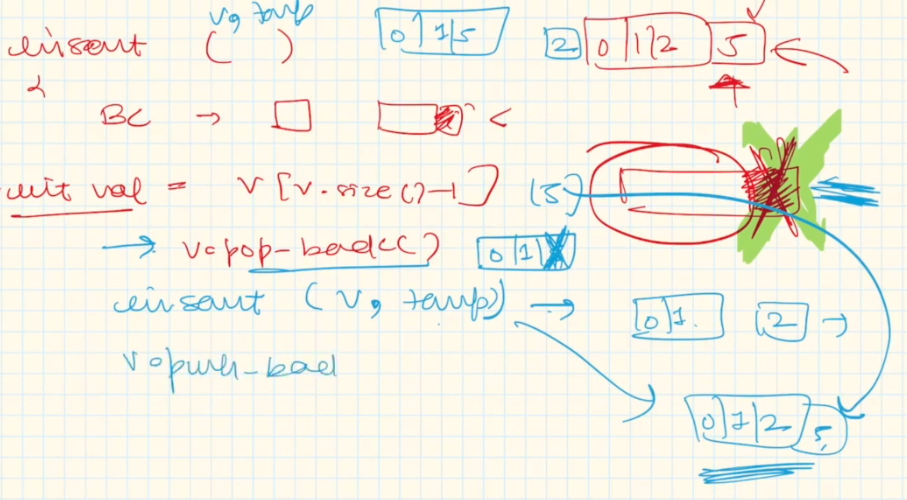 v, temp
insert ( ) 0 1 5 2 0 1 2 5
{
BC → <
int val = v [v.size()-1] (5)
→ v.pop-back() 0 1
insert (v, temp) → 0 1 2 →
v.push-back
0 1 2 5